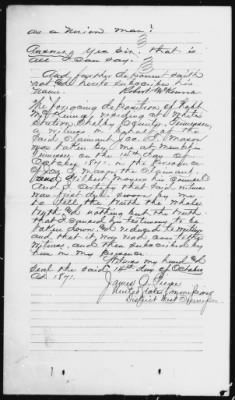 as a Union man?
Answer Yes Sir. that is
all I can say.
And further deponent saith
not and hereto subscribes his
name. Robert McKenna
The foregoing deposition of Robt
McKenna residing at White
Station, Shelby County, Tennessee
a witness in behalf of the
said claimant Geo. L. Mason
was taken by me at Memphis
Tennessee on the 14th day of
October 1871. in the presence
of Geo L Mason the claimant
and Gilbert Moyers his Counsel
And I certify that said witness
was first duly sworn by me
to tell the truth the whole
truth & nothing but the truth
that I caused his testimony to be
taken down and reduced to writing
and that it was read over to the
witness, and then subscribed by
him in my presence
Witness my hand and
seal the said 14th day of October
AD 1871.
James O. Pierce
United States Commissioner
District West Tennessee